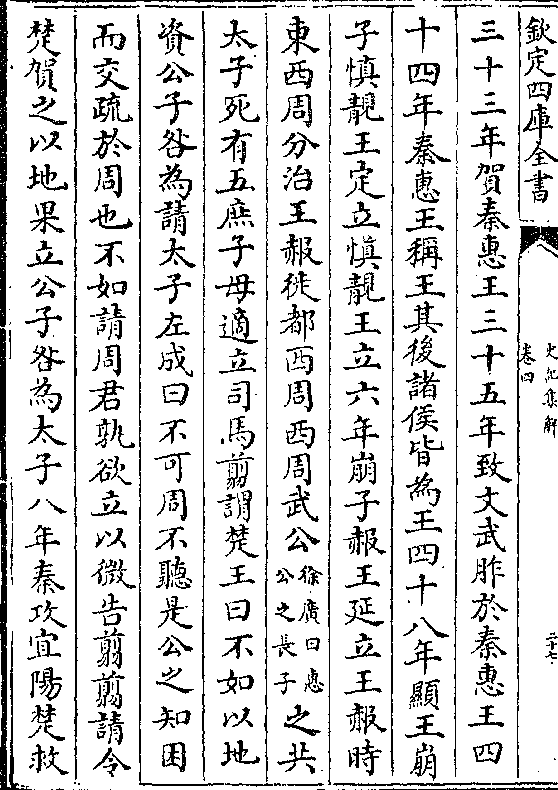 欽定四庫全書
史記集解
卷四
二十七
三十三年賀秦惠王三十五年致文武胙於秦惠王四
十四年秦惠王稱王其後諸侯皆為王四十八年顯王崩
子慎靚王定立慎靚王立六年崩子赧王延立王赧時
東西周分治王赧徙都西周西周武公徐廣曰惠公之長子之共
太子死有五庶子毋適立司馬翦謂楚王曰不如以地
資公子咎為請太子左成曰不可周不聽是公之知困
而交疏於周也不如請周君孰欲立以微告翦翦請令
楚賀之以地果立公子咎為太子八年秦攻宜陽楚救